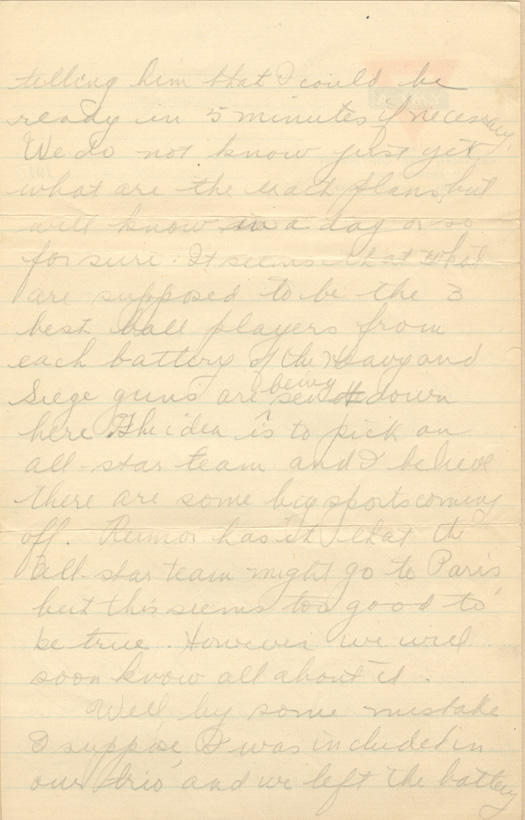 telling him that I could be
ready in 5 minutes if necessary.
We do not know just yet
what are the exact plans, but
will know in a day or so
for sure. It seems that what
are supposed to be the 3
best ball players from
each battery of the Heavy and
Siege guns are being sent down
here. The idea is to pick an
all-star team and I believe
there are some big sports coming
off. Rumor has it that the
all-star team might go to Paris
but this seems too good to
be true. However we will
soon know all about it.
Well by some mistake
I suppose, I was included in
our trio and we left the battery